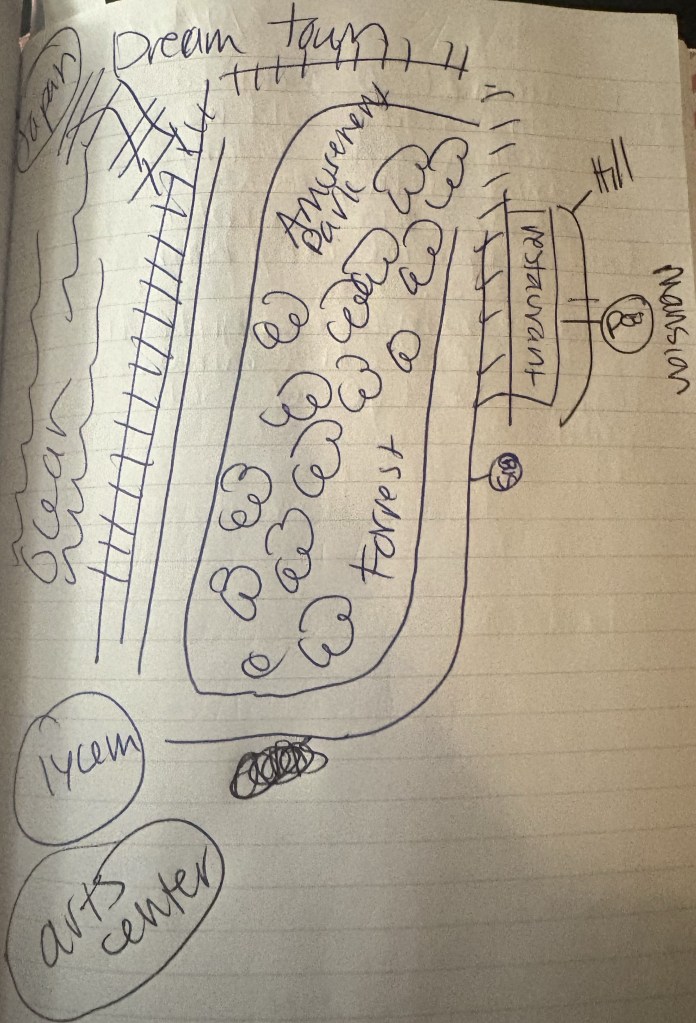 Dream town
Japan
Amusement
Park
restaurant
mansion
Ocean
Forrest
lycem
arts
center